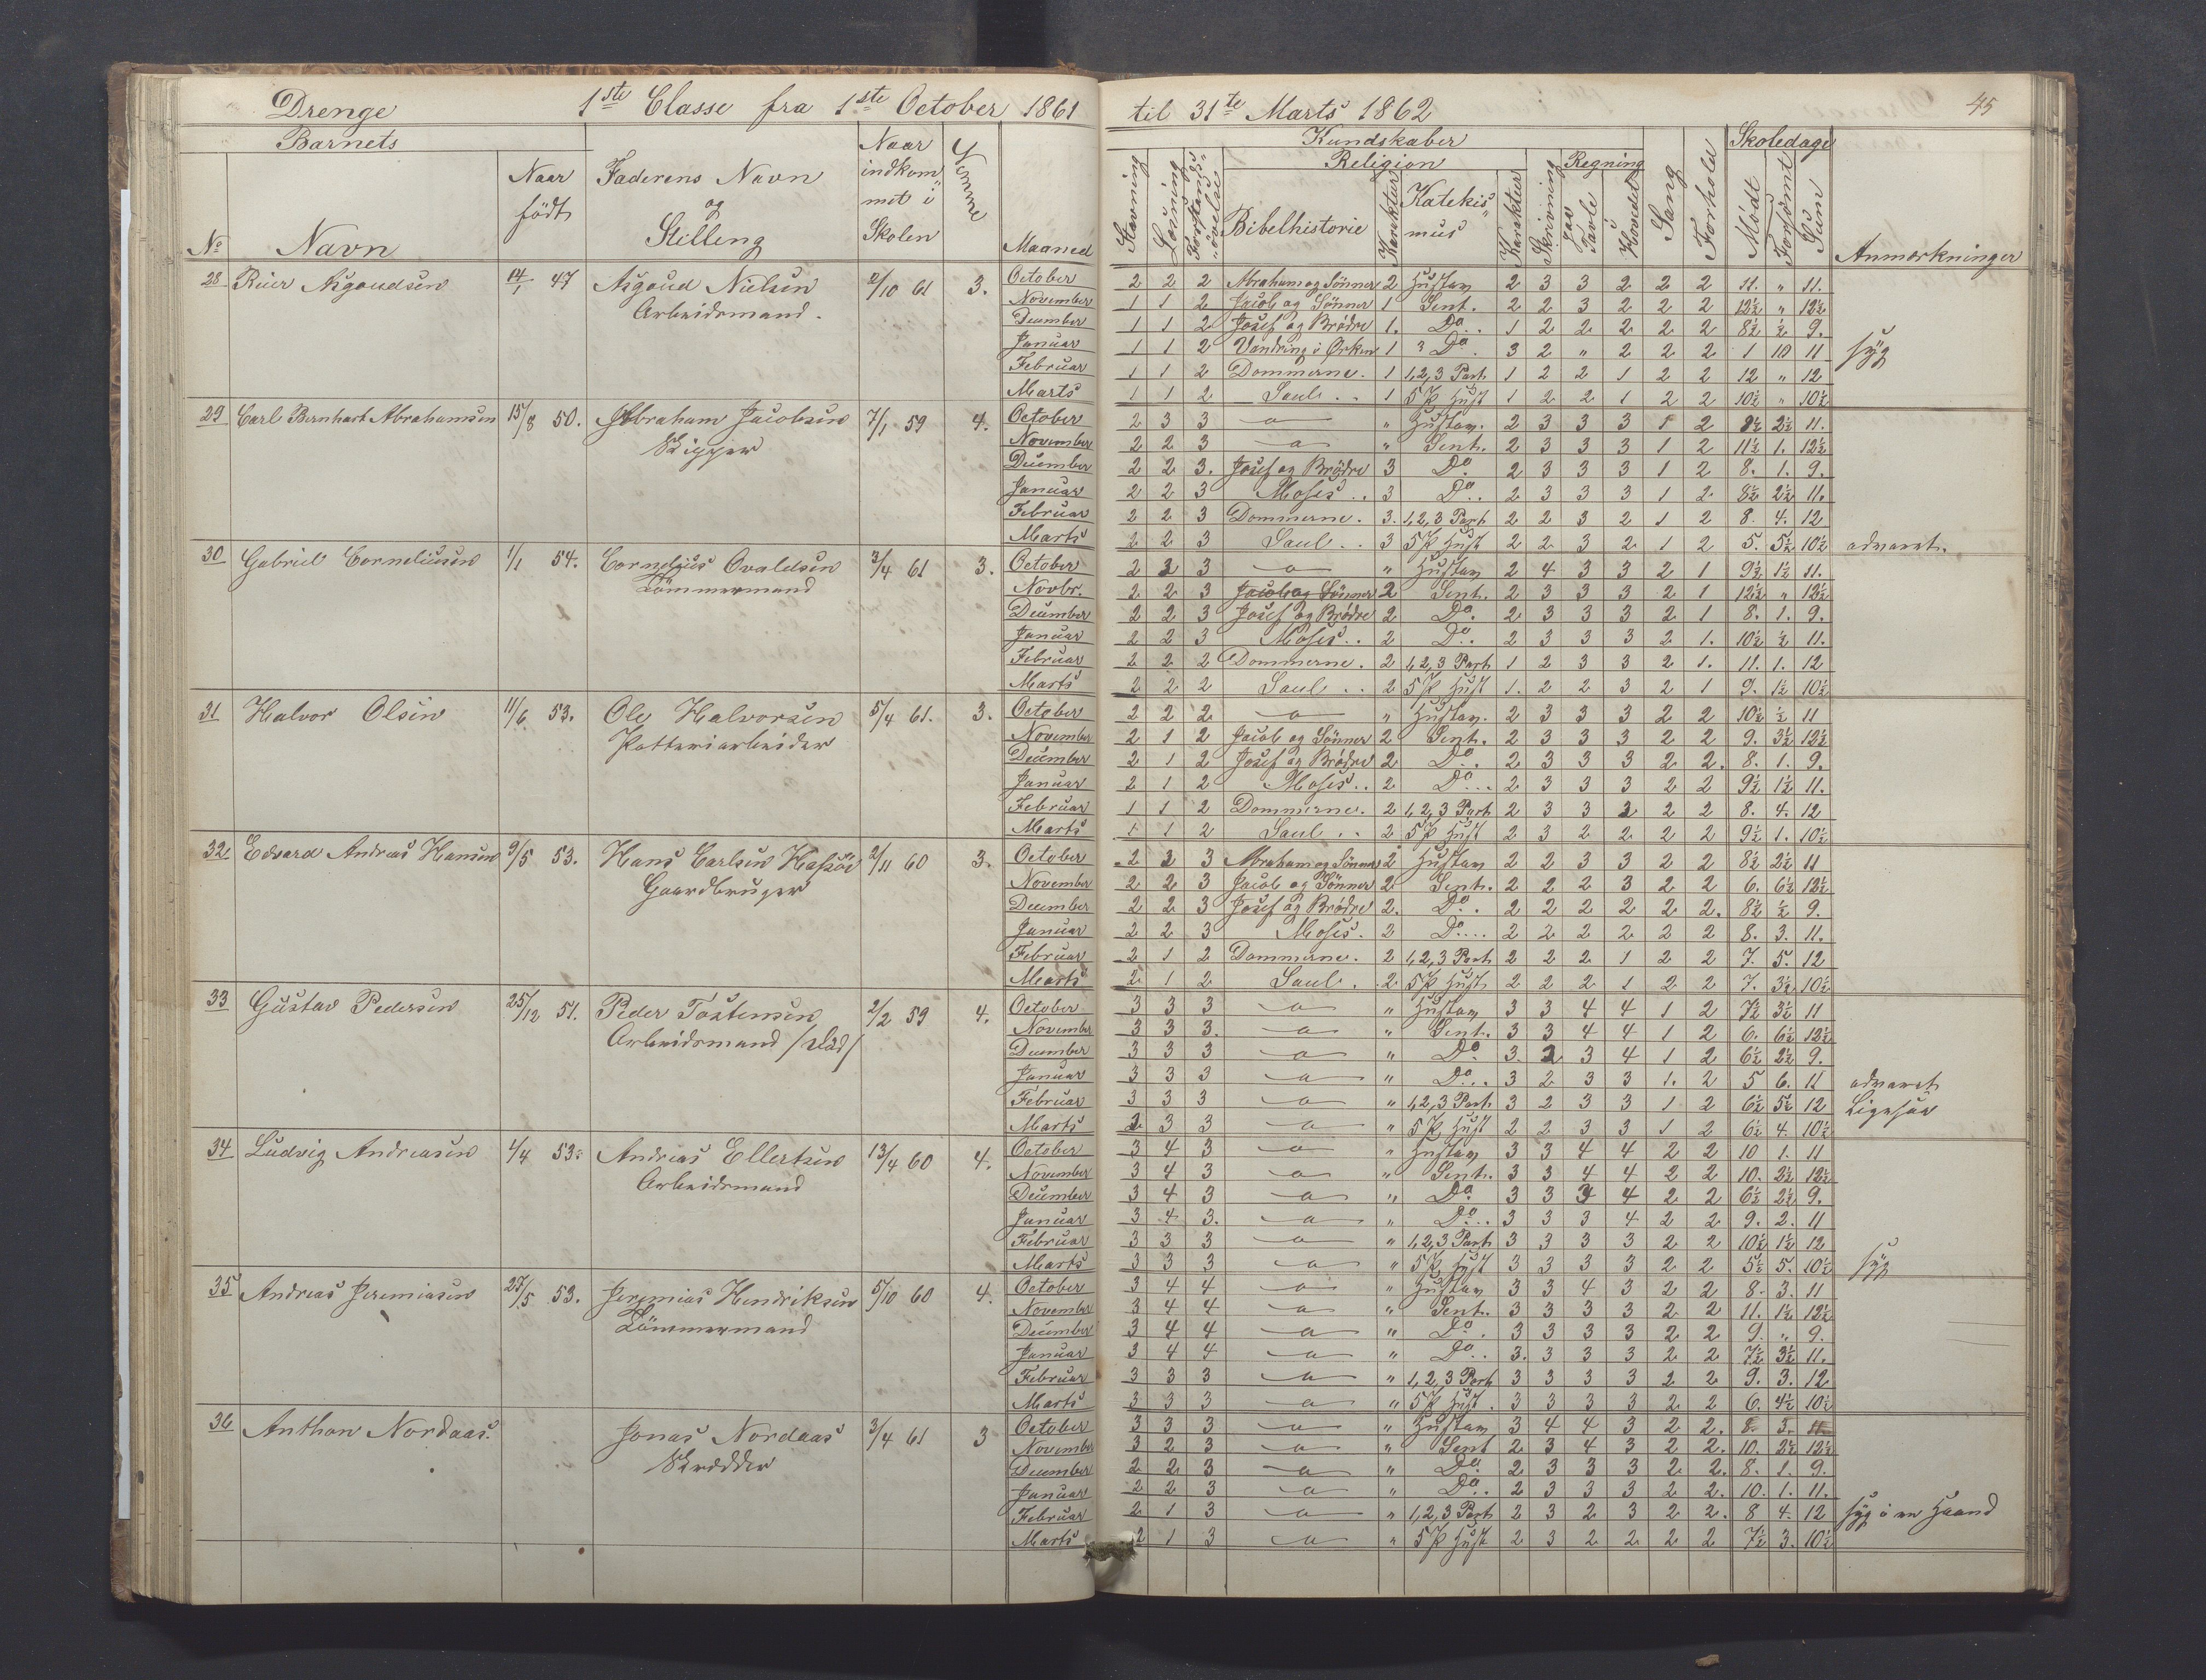 Drenge 1ste Classe fra 1ste October 1861 til 31te Marts 1862 45
Barnets Naar Kundskaber Skoledage
Naar Faderens Navn indkom Religion Regning
født og met i Stavning Læsning Forstandsøvelse Bibelhistorie Karakter Katekismus Karakter Skrivning paa Tavle i Hovedet Sang Forhold Mødt Forsømt Sum
No Navn Stilling Skolen Evne Maaned Anmærkninger
28 Reier Asgaudsen 14/1 47 Asgaud Nielsen 2/10 61 3. October 2 2 2 Abraham og Sønner 2 Hustav 2 3 3 2 2 2 11. " 11.
Arbeidsmand. November 1 1 2 Jacob og Sønner 1 Sent. 2 2 3 2 2 2 12½ " 12½
December 1 1 2 Josef og Brødre 1. Do. 1 2 2 2 2 2 8½ ½ 9.
Januar 1 1 2 Vandring i Ørken 1 Do. 3 2 " 2 2 2 1 10 11 syg
Februar 1 1 2 Dommerne. 1 1,2,3 Part 1 2 2 1 2 2 12 " 12
Marts 1 1 2 Saul.. 1 5 P Hust 1 2 2 1 2 2 10½ " 10½
29 Carl Bernhart Abrahamsen 15/8 50. Abraham Jacobsen 7/1 59 4. October 2 3 3 " Hustav. 2 3 3 3 1 2 2½ 11.
Skipper November 2 2 3 " Sent. 2 3 3 3 1 2 11½ 1. 12½
December 2 2 3. Josef og Brødre 3 Do. 2 3 3 3 1 2 8. 1. 9.
Januar 2 2 3 Moses.. 3 Do.. 2 3 3 3 1 2 8½ 2½ 11.
Februar 2 2 3 Dommerne. 3. 1,2,3 Part 2 2 3 2 1 2 8. 4. 12
Marts 2 2 3 Saul.. 3 5 P Hust 2 2 3 2 1 2 5. 5½ 10½ advaret.
30 Gabriel Corneliusen 1/1 54. Cornelius Ovaldsen 3/4 61 3. October 2 3 3 " Hustav 2 4 3 3 2 1 9½ 1½ 11.
Tømmermand Novbr. 2 2 3 Jacob og Sønner 2 Sent. 2 3 3 3 2 1 12½ " 12½
December 2 2 3 Josef og Brødre 2 Do. 2 3 3 3 2 1 8. 1. 9.
Januar 2 2 3 Moses.. 2 Do.. 2 3 3 3 2 1. 10½ ½ 11.
Februar 2 2 2 Dommerne. 2 1,2,3 Part 1 2 3 3 2 1. 11. 1. 12
Marts 2 2 2 Saul.. 2 5 P Hust 1. 2 2 3 2 1 9. 1½ 10½
31 Halvor Olsen 11/6 53. Ole Halvorsen 5/4 61. 3. October 2 2 2 " Hustav. 2 3 3 3 2 2 10½ ½ 11
Potteriarbeider November 2 1 2 Jacob og Sønner 2 Sent. 2 3 3 3 2 2 9. 3½ 12½
December 2 1 2 Josef og Brødre 2 Do.. 2 3 3 3 2 2. 8. 1. 9.
Januar 2 1 2 Moses.. 2 Do... 2 3 3 3 2 2 9½ 1½ 11.
Februar 1 1 2 Dommerne. 2 1,2,3 Part 2 3 3 2 2 2 8. 4. 12
Marts 1 1 2 Saul.. 2 5 P Hust 2 3 2 2 2 2 9½ 1. 10½
32 Edvard Andreas Hansen 9/5 53. Hans Carlsen Hasøe 2/11 60 3. October 2 3 3 Abraham og Sønner 2 Hustav 2 2 3 3 2 2 8½ 2½ 11
Gaardbruger November 2 2 3 Jacob og Sønner 2 Sent. 2 2 2 3 2 2 6. 6½ 12½
December 2 2 3 Josef og Brødre 2. Do.. 2 2 2 2 2 2. 8½ ½ 9.
Januar 2 2 3 Moses. 2 Do.... 2 2 2 2 2 2 8. 3. 11.
Februar 2 1 2 Dommerne. 2 1,2,3 Part 2 2 2 1 2 2 7. 5. 12
Marts 2 1 2 Saul. 2 5 P Hust 2 2 2 1 2 2 7. 3½ 10½
33 Gustav Pedersen 25/12 51. Peder Tostensen 2/2 59 4. October 3 3 3 " Hustav 3 3 4 4 1 2 7½ 3½ 11
Arbeidsmand /død/ November 3 3 3. " Sent. 3 3 4 4 1 2 6. 6½ 12½
December 3 3 3 " Do. 3. 2 3 4 1 2 6½ 2½ 9.
Januar 3 3 3 " Do... 3 2 3 3 1. 2 5 6. 11 advaret
Februar 3 3 3 " 1,2,3 Part 3 2 3 3 1 2 6½ 5½ 12 Ligesaa
Marts 3 3 3 " 5 P Hust 2 2 3 3 1 2 6½ 4. 10½
34 Ludvig Andreasen 4/4 53. Andreas Ellertsen 13/4 60 4. October 3 4 3 " Hustav 3 3 4 4 2 2 10 1. 11
Arbeidsmand November 3 4 3 " Sent. 3 3 4 4 2 2 10. 2½ 12½
December 3 4 3 " Do. 3 3 3 4 2 2 6½ 2½ 9.
Januar 3 4 3. " Do... 3 3 3 4 2 2 9. 2. 11
Februar 3 3 3 " 1,2,3 Part 3 3 3 3 2 2 10½ 1½ 12
Marts 3 3 3 " 5 P Hust 3 3 3 3 2 2 5½ 5. 10½ syg
35 Andreas Jeremiasen 27/5 53. Jeremias Hendriksen 5/10 60 4. October 3 4 4 " Hustav 3 3 4 3 2 2 8. 3. 11
Tømmermand November 3 4 4 " Sent. 3 3 3 3 2 2 11. 1½ 12½
December 3 4 4 " Do. 3 3 3 3 2 2 9. " 9.
Januar 3 4 4 " Do.. 3. 3 3 3 2 2 7½ 3½ 11.
Februar 3 3 3 " 1,2,3 Part 3 3 3 3 2 2 9. 3. 12
Marts 3 3 3 " 5 P Hust. 3 3 3 3 2 2 6. 4½ 10½
36 Anthon Nordaas. Jonas Nordaas 3/4 61 3 October 3 3 3 " Hustav 3 4 4 3 2 2. 8. 3. 11
Skrædder November 3 2 3 " Sent 2 3 4 3 2 2. 10. 2½ 12½
December 2 2 3 " Do. 2 3 3 3 2 2. 8. 1. 9.
Januar 2 2 3 " Do.. 2 3 3 3 2 2. 10. 1. 11.
Februar 2 1 3 " 1,2,3 Part 2 3 2 3 2 2. 8 4. 12 syg i en Haand
Marts 2 1 3 " 5 P Hust 2 3 2 2 2 2 7½ 3. 10½